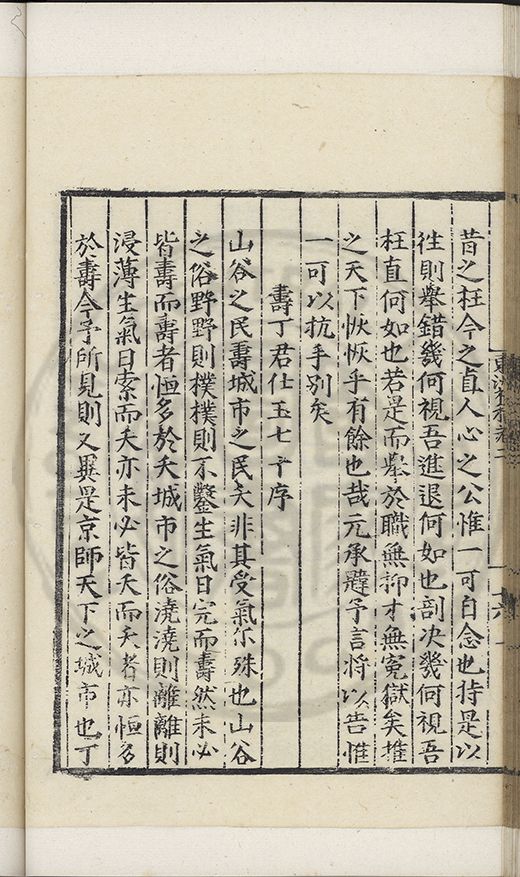 昔之枉今之直人心之公惟一可自念也持是以
徃則舉錯幾何視吾進退何如也剖决幾何視吾
枉直何如也若是而舉於職無抑才無寃獄矣推
之天下恢恢乎有餘也哉元承韙予言將以告惟
一可以抗手别矣
壽丁君仕玉七十序
山谷之民壽城市之民夭非其受氣尔殊也山谷
之俗野野則樸樸則不鑿生氣日完而壽然未必
皆壽而壽者恒多於夭城市之俗澆澆則離離則
浸薄生氣日索而夭亦未必皆夭而夭者亦恒多
於壽今予所見則又異是京師天下之城市也丁